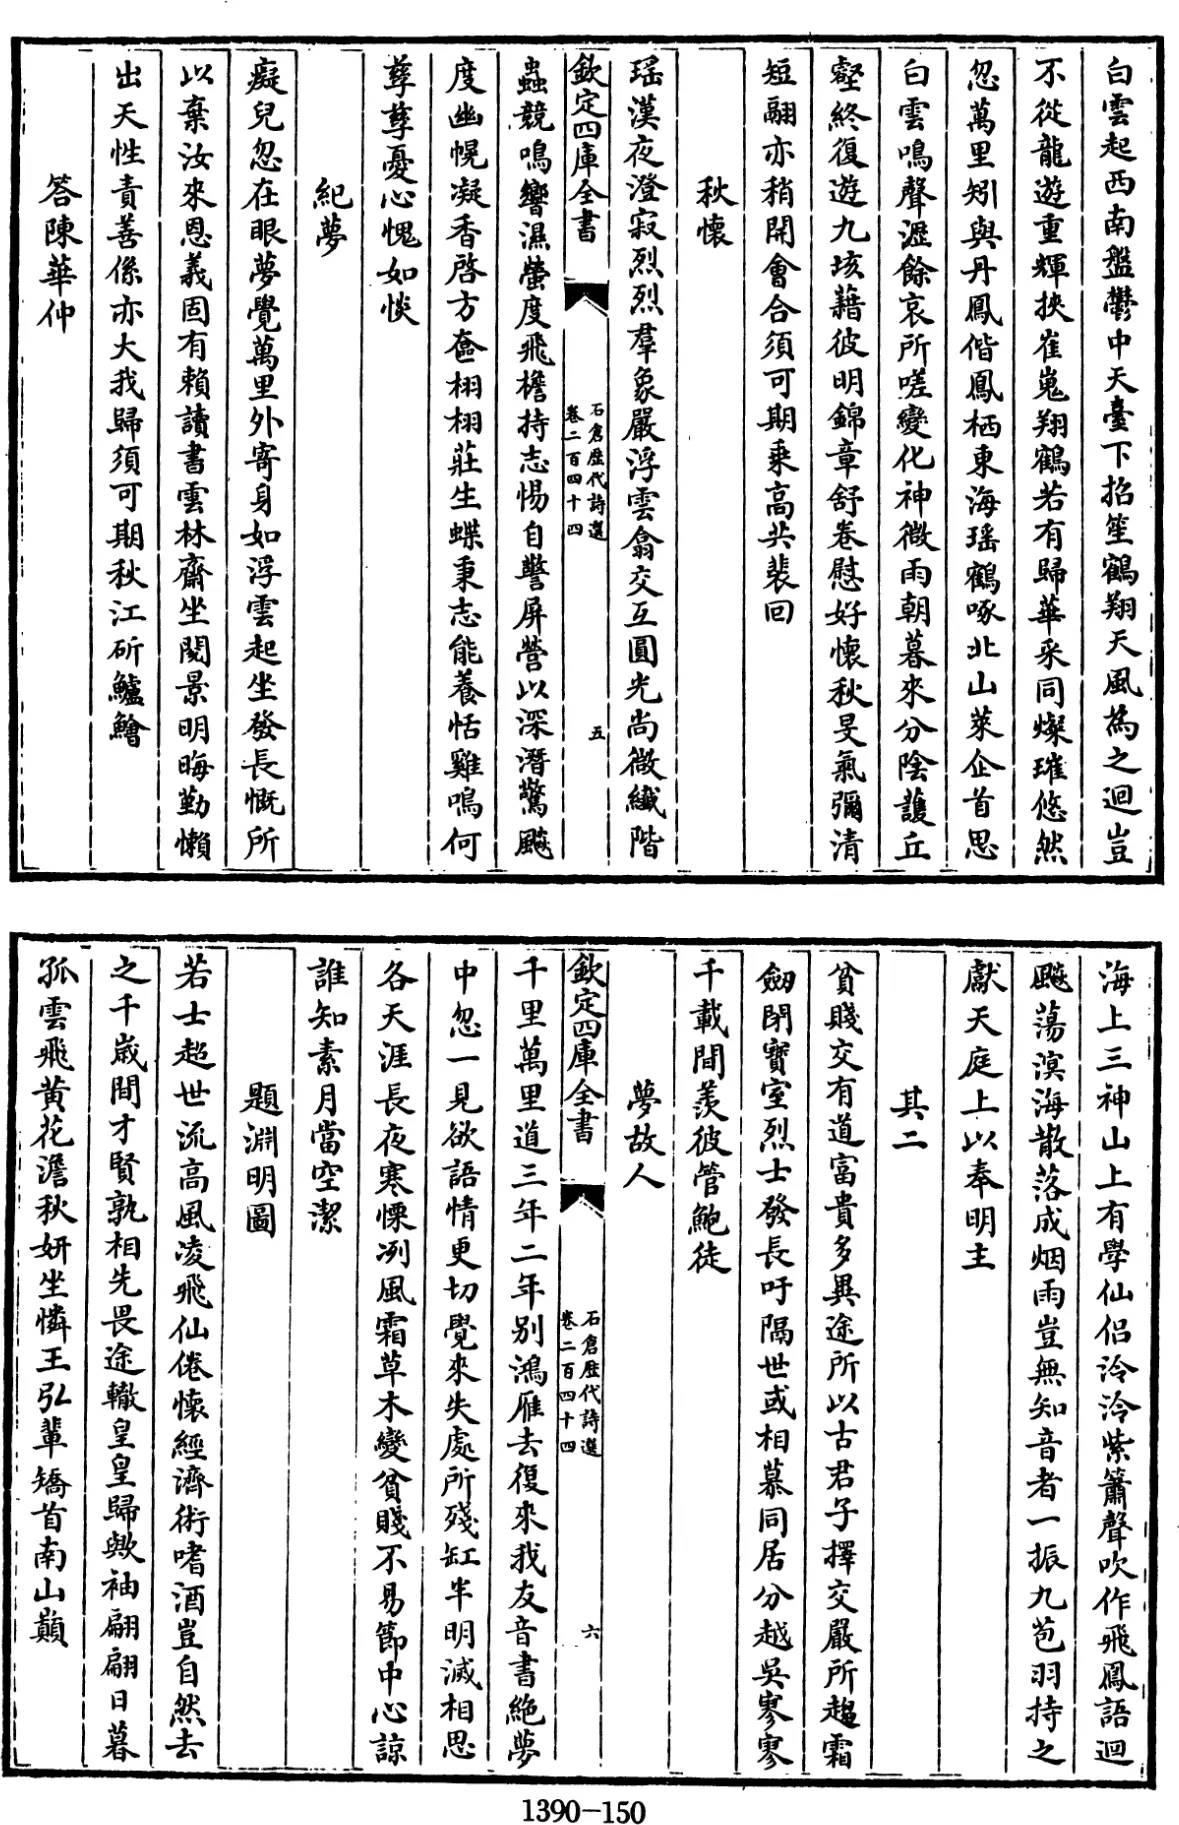 白雲起西南盤鬱中天臺下招笙鶴翔天風為之迴豈
不從龍遊重輝挾崔嵬翔鶴若有歸華采同燦璀悠然
忽萬里矧與丹鳳偕鳳栖東海瑶鶴啄北山萊企首思
白雲鳴聲遝餘哀所嗟變化神微雨朝暮來分陰護丘
壑終復遊九垓藉彼明錦章舒卷慰好懷秋旻氣彌清
短翮亦稍開會合須可期乘高共裴回
秋懷
瑶漢夜澄寂烈烈羣象嚴浮雲翕交互圓光尚微纎階
欽定四庫全書
石倉歷代詩選
卷二百四十四
五
蟲競鳴響濕螢度飛檐持志惕自警屏營以深潛驚飈
度幽幌凝香啓方奩栩栩莊生蝶秉志能養恬雞鳴何
孳孳憂心愧如惔
紀夢
癡兒忽在眼夢覺萬里外寄身如浮雲起坐發長慨所
以棄汝來恩義固有賴讀書雲林齋坐閱景明晦勤懶
出天性責善係亦大我歸須可期秋江斫鱸鱠
答陳華仲
海上三神山上有學仙侣泠泠紫簫聲吹作飛鳳語迴
飈蕩溟海散落成烟雨豈無知音者一振九苞羽持之
獻天庭上以奉明主
其二
貧賤交有道富貴多異途所以古君子擇交嚴所趨霜
劒閉寶室烈士發長吁隔世或相慕同居分越吳寥寥
千載間羨彼管鮑徒
夢故人
千里萬里道三年二年别鴻雁去復來我友音書絶夢
欽定四庫全書
石倉歷代詩選
卷二百四十四
六
中忽一見欲語情更切覺來失處所殘缸半明滅相思
各天涯長夜寒慄冽風霜草木變貧賤不易節中心諒
誰知素月當空潔
題淵明圖
若士超世流高風凌飛仙倦懷經濟術嗜酒豈自然去
之千歲間才賢孰相先畏途轍皇皇歸歟袖翩翩日暮
孤雲飛黄花澹秋妍坐憐王弘輩矯首南山巔
1390-150